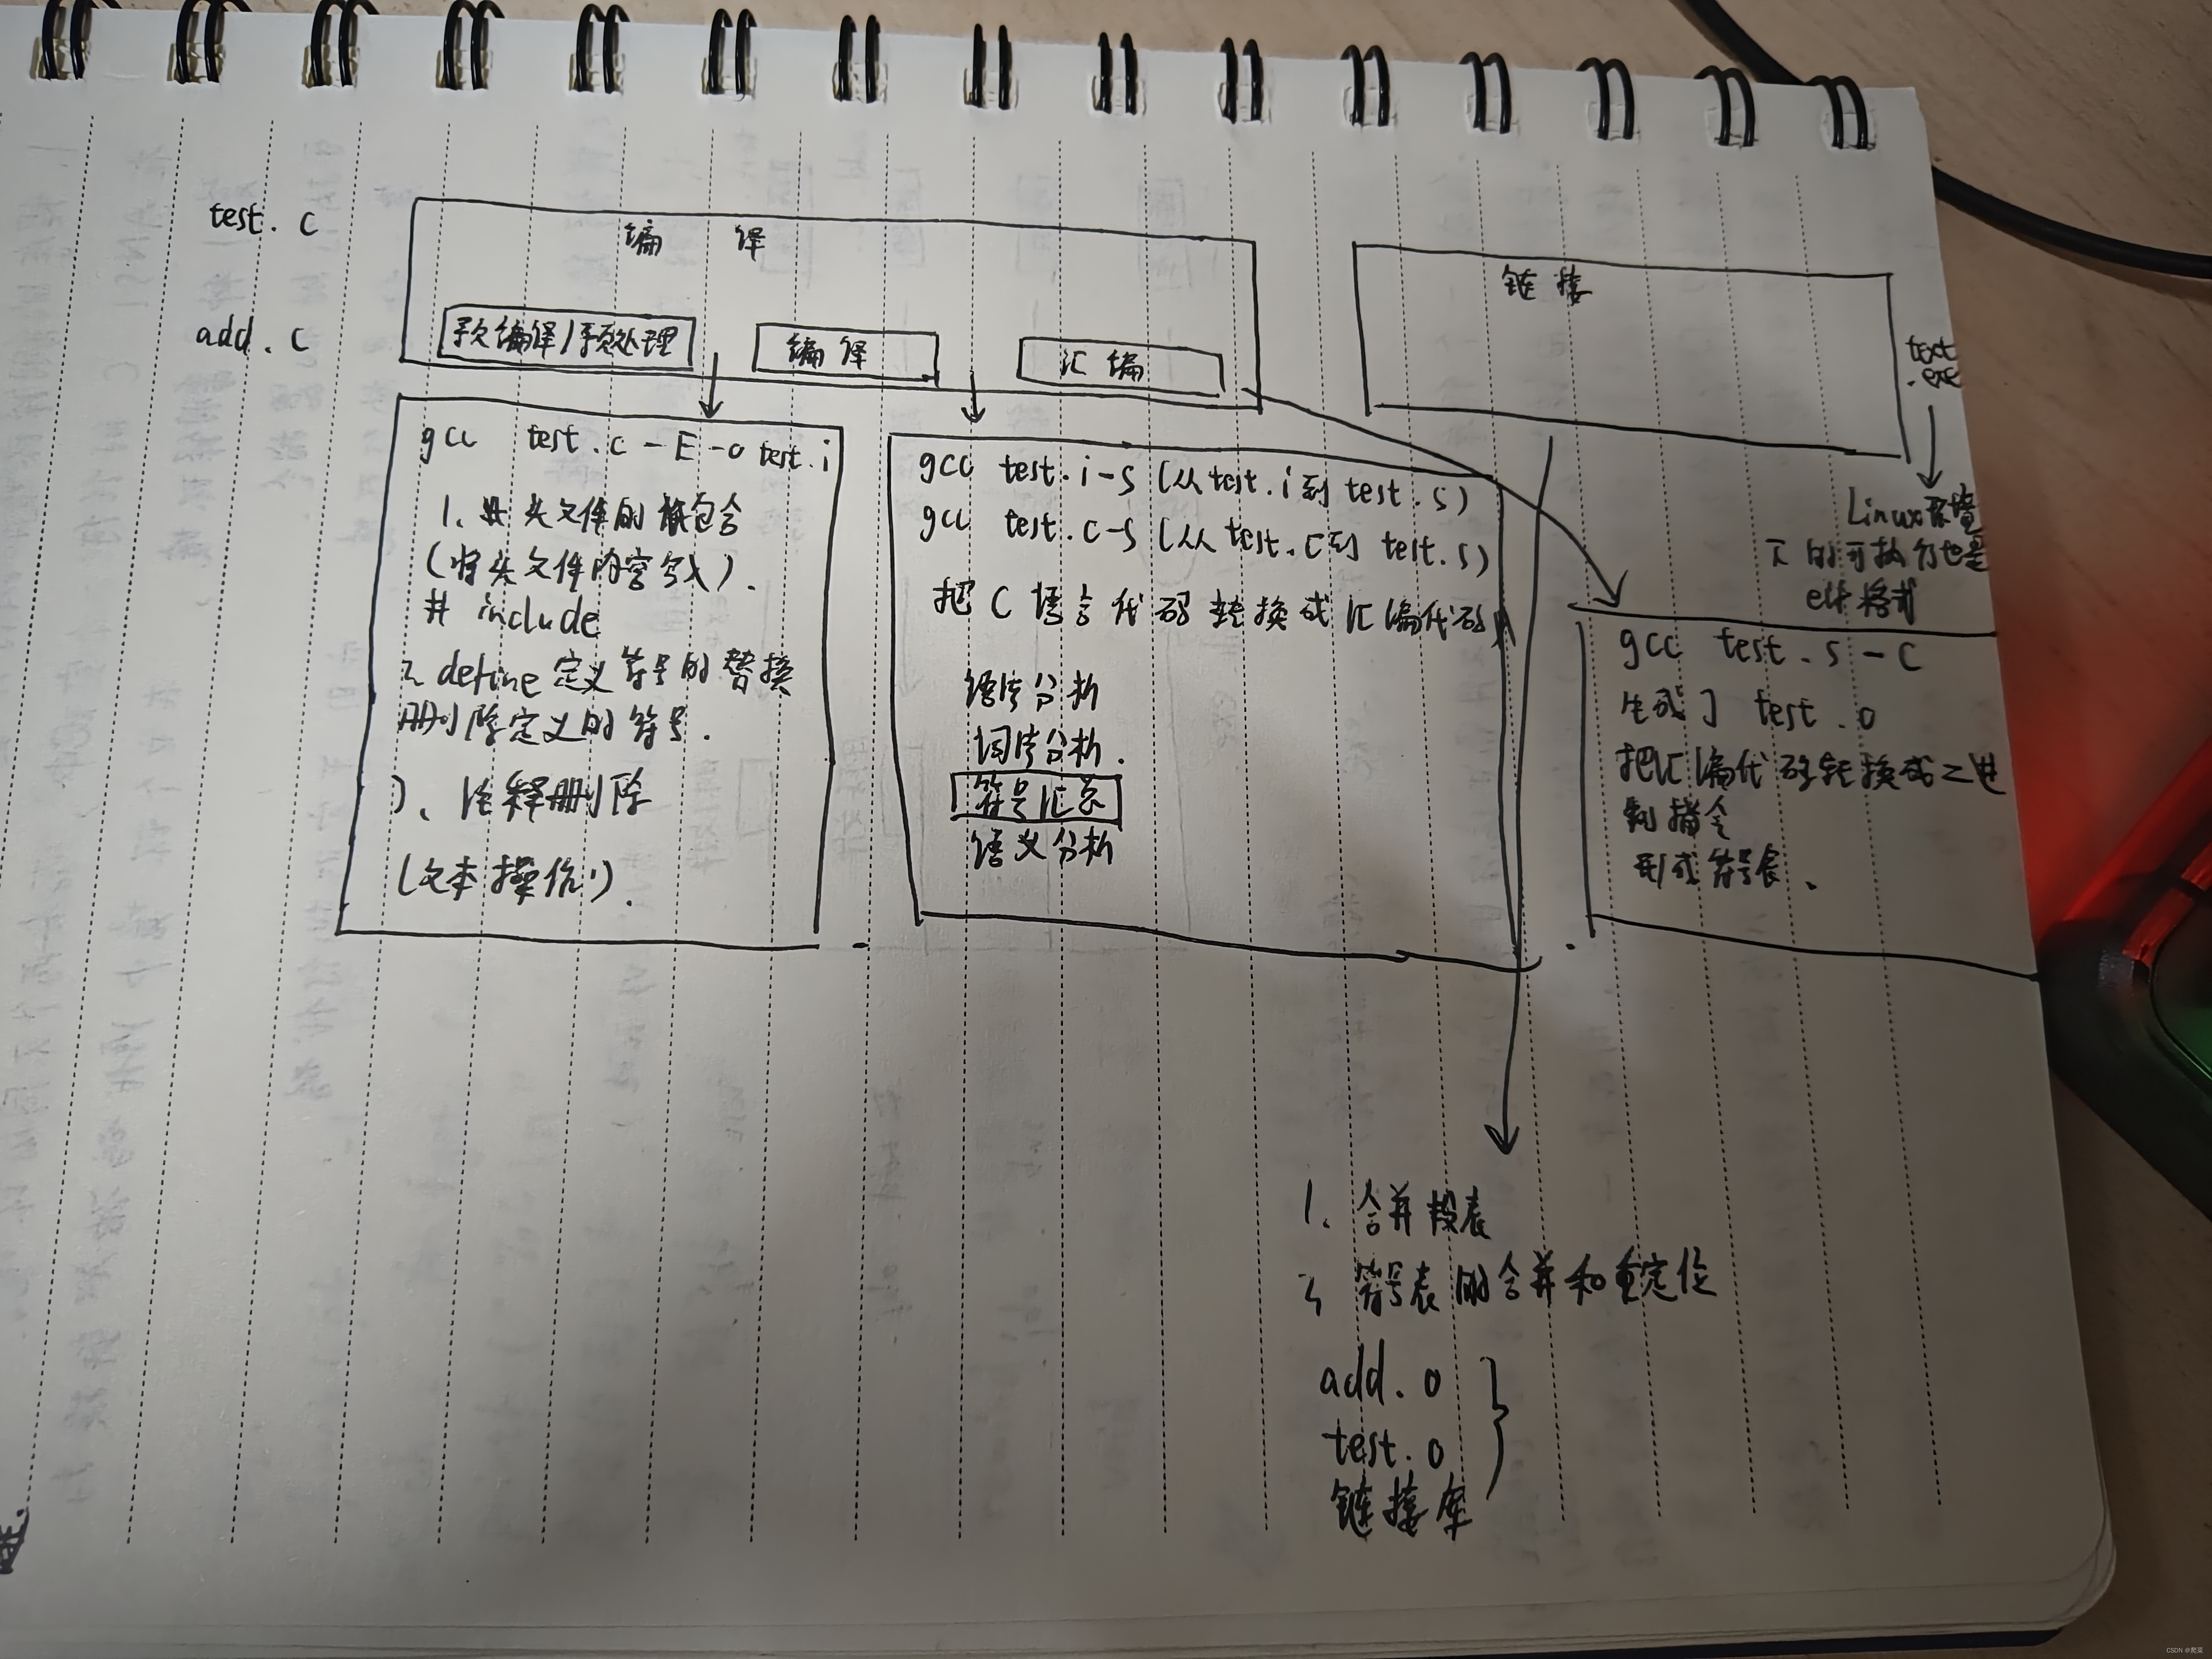 test.c
add.c
编译
预编译/预处理
编译
汇编
链接
text
.exe
Linux环境
下的可执行也是
elf格式
gcc test.c -E -o test.i
1、头文件的包含
(将头文件内容).
# include
2 define定义符号的替换
删除定义的符号.
3、注释删除
(文本操作).
gcc test.i -S (从test.i到test.s)
gcc test.c -S (从test.c到test.s)
把C语言代码转换成汇编代码
语法分析
词法分析.
符号汇总
语义分析
gcc test.s -c
生成了 test.o
把汇编代码转换成二进
制指令
形成符号表、
1、合并段表
2 符号表的合并和重定位
add.o
test.o
链接库
CSDN @爬菜